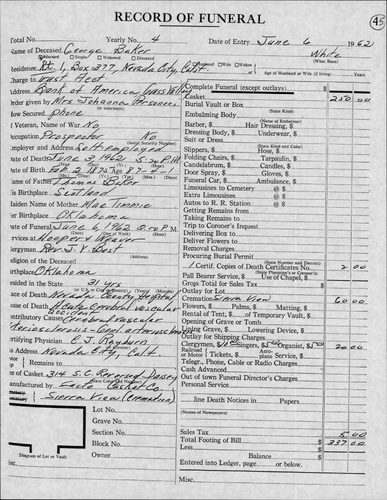 RECORD OF FUNERAL
45
Total No. Yearly No. 4 Date of Entry June 6 1962
Name of Deceased George Baker White
Residence Rt 1, Box 277, Nevada City, Calif.
Charge to Trust Acct
Address Bank of America, Grass Valley
Order given by Mrs Johanna
How Secured phone
If Veteran, Name of War No
Occupation Prospector No
Employer and Address Self employed
Date of Death June 3, 1962 5:20 P.M.
Date of Birth Feb 2 1875 87-4-1
Name of Father Thomas Baker
His Birthplace Scotland
Maiden Name of Mother Mae Timmie
Her Birthplace Oklahoma
Date of Funeral June 6, 1962 2:00 P.M.
Services at Hooper & Weaver
Clergyman Rev. J. V. Bost
Religion of the Deceased
Birthplace Oklahoma
Resided in the State 31 yrs
Place of Death Nevada County Hospital
Cause of Death Acute Cerebral Vascular accident
Contributory Cause Cerebro vascular
Arteriosclerosis - Gen'l arteriosclerosis
Certifying Physician C. J. Rayburn
His Address Nevada City, Calif.
Remains to
Size of Casket 314 S.C.
Manufactured by Casket Co.
Sierra View (Cremation)
Lot No.
Grave No.
Section No.
Block No.
Owner
Diagram of Lot or Vault
Complete Funeral (except outlays) $
Casket 250 00
Burial Vault or Box
Embalming Body
Barber, $ Hair Dressing, $
Dressing Body, $ Underwear, $
Suit or Dress
Slippers, $ Hose, $
Folding Chairs, $ Tarpaulin, $
Candelabrum, $ Candles, $
Door Spray, $ Gloves, $
Funeral Car, $ Ambulance, $
Limousines to Cemetery @ $
Extra Limousines @ $
Autos to R. R. Station @ $
Getting Remains from
Taking Remains to
Trip to Coroner's Inquest
Delivering Box to
Deliver Flowers to
Removal Charges
Procuring Burial Permit
1 Certif. Copies of Death Certificate No. 2 00
Pall Bearer Service, $ Use of Chapel, $
Gross Total for Sales Tax $
Outlay for Lot
Cremation Sierra View 60 00
Flowers, $ Palms, $ Matting, $
Rental of Tent, $ of Temporary Vault, $
Opening of Grave or Tomb
Lining Grave, $ Lowering Device, $
Outlay for Shipping Charges
Clergyman, $10 Singers, $5 Organist, $5 20 00
Railroad or Motor Tickets, $ Aeroplane Service, $
Telegr., Phone, Cable or Radio Charges
Cash Advanced
Out of town Funeral Director's Charges
Personal Service
line Death Notices in Papers
(Names of Newspapers)
Sales Tax 5 00
Total Footing of Bill $ 337 00
Less $
Balance $
Entered into Ledger, page or below.
Misc.
Misc.